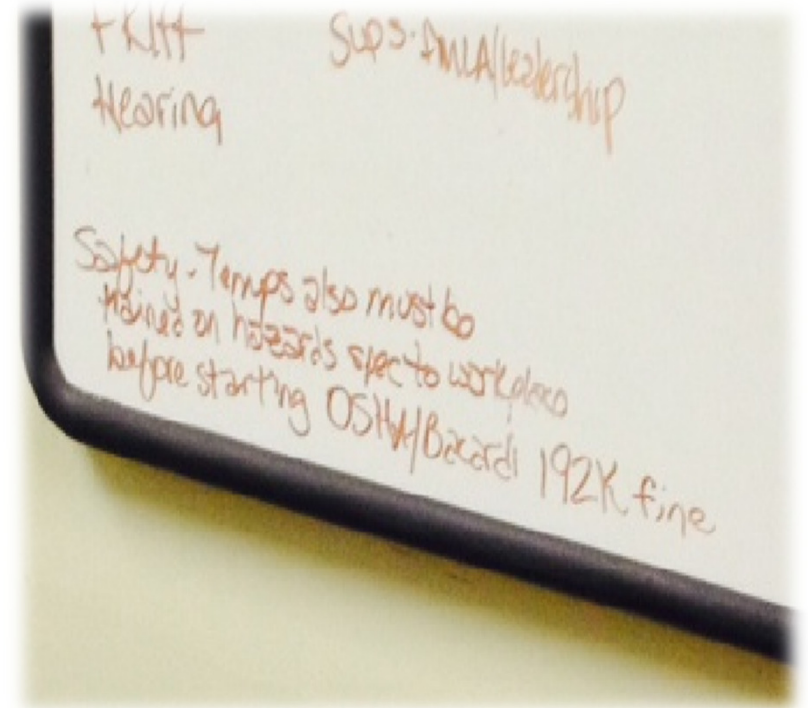 Sups. FMLA/leadership
Hearing
Safety - Temps also must be
trained on hazards spec to workplace
before starting OSHA/Bacardi 192K fine